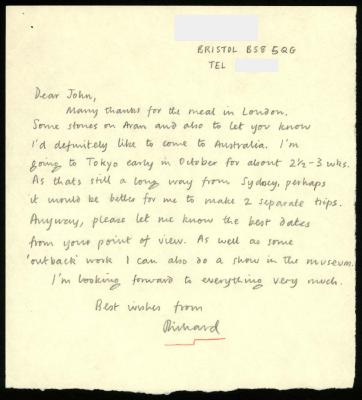 BRISTOL BS8 5QG
TEL
Dear John,
Many thanks for the meal in London.
Some stones on Aran and also to let you know
I'd definitely like to come to Australia. I'm
going to Tokyo early in October for about 2½-3 wks.
As thats still a long way from Sydney, perhaps
it would be better for me to make 2 separate trips.
Anyway, please let me know the best dates
from your point of view. As well as some
'outback' work I can also do a show in the museum.
I'm looking forward to everything very much.
Best wishes from
Richard